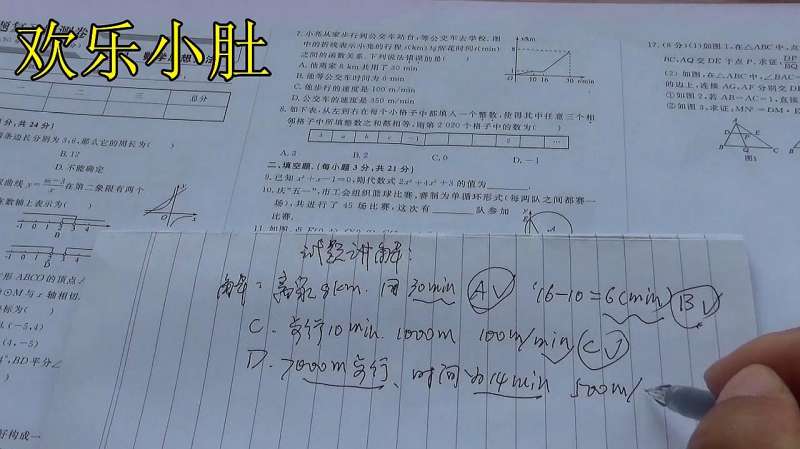 欢乐小肚
7. 小亮从家步行到公交车站台,等公交车去学校. 图
中的折线表示小亮的行程 s(km)与所花时间 t(min)
之间的函数关系. 下列说法错误的是(    )
A. 他离家 8 km 共用了 30 min
B. 他等公交车时间为 6 min
C. 他步行的速度是 100 m/min
D. 公交车的速度是 350 m/min
8. 如下表,从左到右在每个小格子中都填入一个整数,使得其中任意三个相
邻格子中所填整数之和都相等,则第 2 020 个格子中的数为(    )
A. 3 B. 2 C. 0 D. -1
二、填空题. (每小题 3 分,共 21 分)
9. 已知 x²+x-1=0,则代数式 2x²+4x²+3 的值为
10. 庆"五一",市工会组织篮球比赛,赛制为单循环形式(每两队之间都赛一
场),共进行了 45 场比赛,这次有 队参加
比赛.
一 二 三 总分
分,共 24 分)
条边长分别为 3,6,那么它的周长为(    )
B. 12
D. 不能确定
在第二象限有两个
在数轴上表示为(    )
形 ABCD 的顶点
⊙M 与 x 轴相切.
标为(    )
(-5,4)
(4,-5)
BD 平分∠
17. (8 分)(1)如图 1,在△ABC 中,点
BC,AQ 交 DE 于点 P. 求证:
(2) 如图,在△ABC 中,∠BAC=
的边上,连接 AG,AF 分别交 D
①如图 2,若 AB=AC=1,直接
②如图 3,求证:MN²=DM·E
图1
试题讲解:
解: 离家8km. 用30min A√ 16-10=6(min) B√
C. 步行10min. 1000m 100m/min C√
D. 7000m 步行、时间为14min 500m/